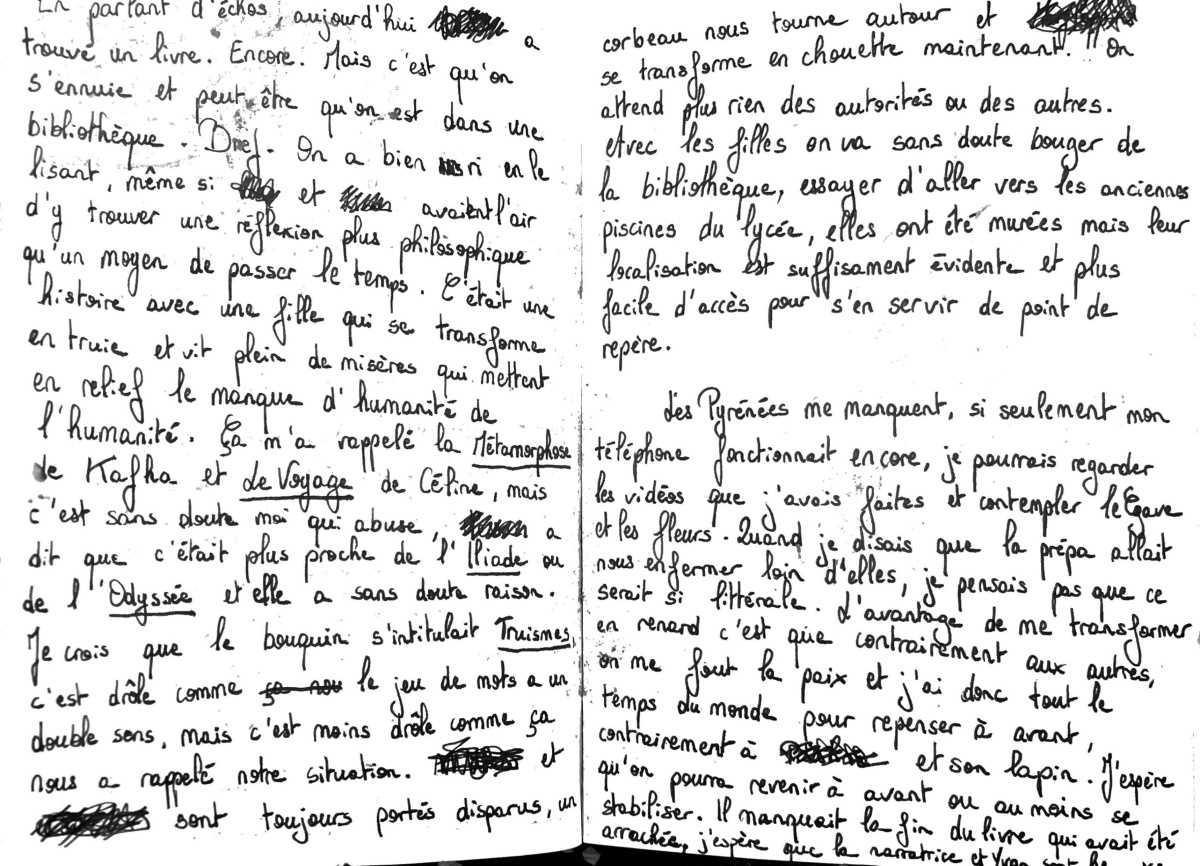 En parlant d'échos, aujourd'hui a
trouvé un livre. Encore. Mais c'est qu'on
s'ennuie et peut être qu'on est dans une
bibliothèque. Bref. On a bien ri en le
lisant, même si et avaient l'air
d'y trouver une réflexion plus philosophique
qu'un moyen de passer le temps. C'était une
histoire avec une fille qui se transforme
en truie et vit plein de misères qui mettent
en relief le manque d'humanité de
l'humanité. Ça m'a rappelé la Métamorphose
de Kafka et Le Voyage de Céline, mais
c'est sans doute moi qui abuse, a
dit que c'était plus proche de l'Iliade ou
de l'Odyssée et elle a sans doute raison.
Je crois que le bouquin s'intitulait Truismes,
c'est drôle comme ça nou le jeu de mots a un
double sens, mais c'est moins drôle comme ça
nous a rappelé notre situation. et
sont toujours portés disparus, un
corbeau nous tourne autour et
se transforme en chouette maintenant. On
attend plus rien des autorités ou des autres.
Avec les filles on va sans doute bouger de
la bibliothèque, essayer d'aller vers les anciennes
piscines du lycée, elles ont été murées mais leur
localisation est suffisament évidente et plus
facile d'accès pour s'en servir de point de
repère.
Les Pyrénées me manquent, si seulement mon
téléphone fonctionnait encore, je pourrais regarder
les vidéos que j'avais faites et contempler le Gave
et les fleurs. Quand je disais que la prépa allait
nous enfermer loin d'elles, je pensais pas que ce
serait si littérale. L'avantage de me transformer
en renard c'est que contrairement aux autres,
on me fout la paix et j'ai donc tout le
temps du monde pour repenser à avant,
contrairement à et son lapin. J'espère
qu'on pourra revenir à avant ou au moins se
stabiliser. Il manquait la fin du livre qui avait été
arrachée, j'espère que la narratrice et Yvan